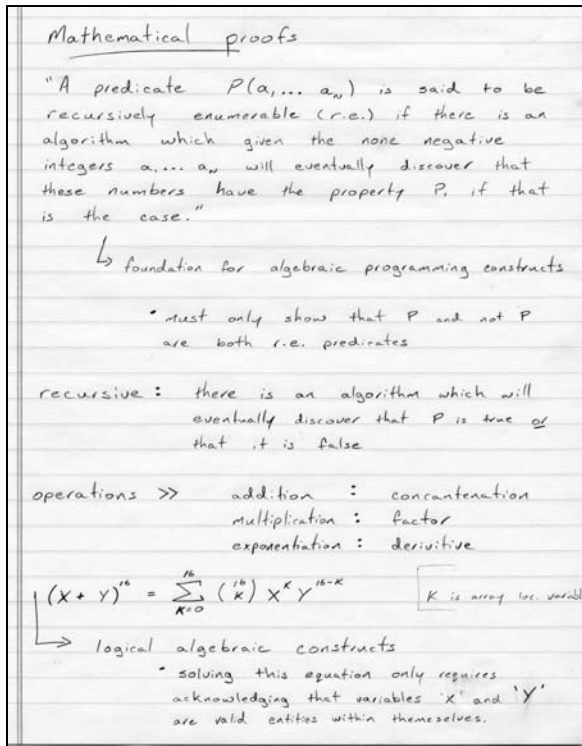 Mathematical proofs
"A predicate P(a₁... aₙ) is said to be
recursively enumerable (r.e.) if there is an
algorithm which given the none negative
integers a₁... aₙ will eventually discover that
these numbers have the property P. if that
is the case."
↳ foundation for algebraic programming constructs
• must only show that P and not P
are both r.e. predicates
recursive : there is an algorithm which will
eventually discover that P is true or
that it is false
operations >> addition : concantenation
multiplication : factor
exponentiation : derivitive
(X + Y)¹⁶ = ∑_{K=0}^{16} (16 K) X^K Y^{16-K} K is array loc. variabl
↳ logical algebraic constructs
• solving this equation only requires
acknowledging that variables 'X' and 'Y'
are valid entities within themeselves.